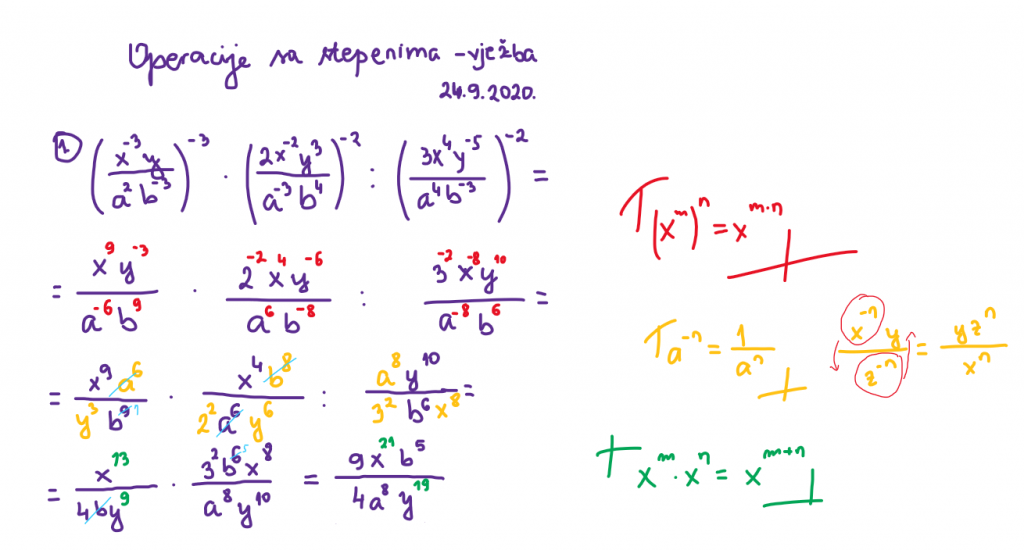 Operacije sa stepenima - vježba
24.9.2020.
1 (x⁻³y / a²b⁻³)⁻³ · (2x⁻²y³ / a⁻³b⁴)⁻² : (3x⁴y⁻⁵ / a⁴b⁻³)⁻² =
= x⁹y⁻³ / a⁻⁶b⁹ · 2⁻²x⁴y⁻⁶ / a⁶b⁻⁸ : 3⁻²x⁻⁸y¹⁰ / a⁻⁸b⁶ =
= x⁹a⁶ / y³b⁹ ¹ · x⁴b⁸ / 2²a⁶y⁶ : a⁸y¹⁰ / 3²b⁶x⁸ =
= x¹³ / 4by⁹ · 3²b⁶ ⁵x⁸ / a⁸y¹⁰ = 9x²¹b⁵ / 4a⁸y¹⁹
T (xᵐ)ⁿ = xᵐ·ⁿ
T a⁻ⁿ = 1 / aⁿ
x⁻ⁿy / z⁻ⁿ = yzⁿ / xⁿ
T xᵐ · xⁿ = xᵐ⁺ⁿ